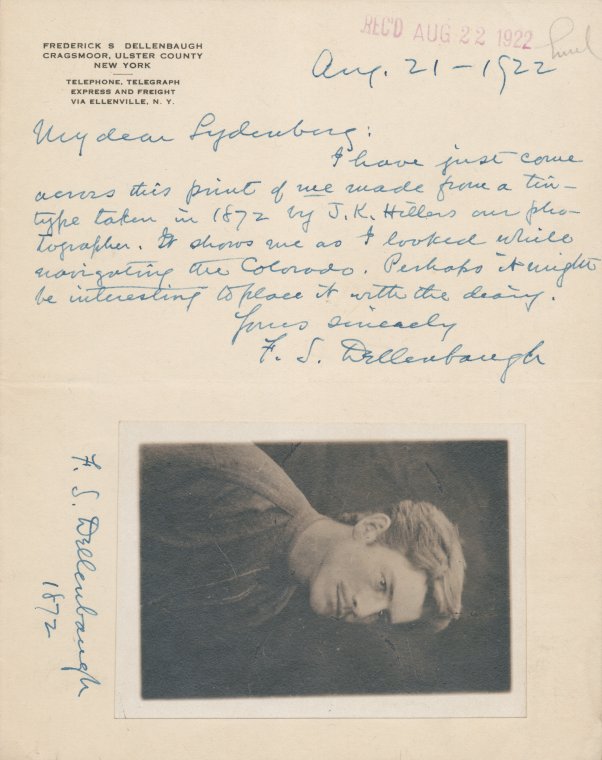 FREDERICK S DELLENBAUGH
CRAGSMOOR, ULSTER COUNTY
NEW YORK
TELEPHONE, TELEGRAPH
EXPRESS AND FREIGHT
VIA ELLENVILLE, N. Y.
REC'D AUG 22 1922
Aug. 21 - 1922
My dear Lydenberg:
I have just come
across this print of me made from a tin-
type taken in 1872 by J.K. Hillers our pho-
tographer. It shows me as I looked while
navigating the Colorado. Perhaps it might
be interesting to place it with the diary.
Yours sincerely
F. S. Dellenbaugh
F. S. Dellenbaugh
1872